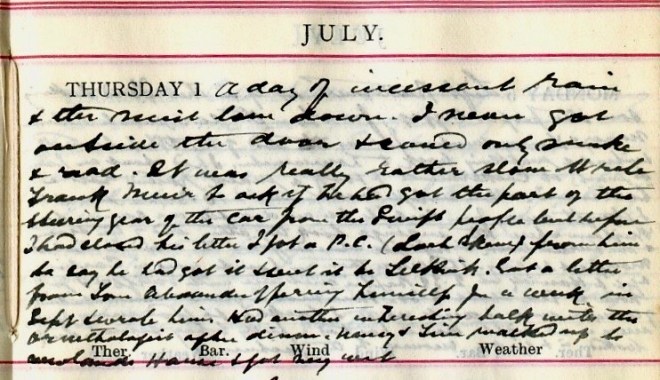 JULY.
THURSDAY 1 A day of incessant rain
& the mist low down. I never got
outside the door & could only smoke
& read. It was really rather slow. Wrote
Frank Muir to ask if he had got the part of the
steering gear of the car from the Swift people but before
I had closed his letter I got a P.C. ( ) from him
to say he had got it & sent it to Selkirk. Got a letter
from Tom Alexander offering himself for a week in
Sept & wrote him. Had another interesting talk with the
ornithologist after dinner. Nancy & walked up to
House & got very wet
Ther. Bar. Wind Weather